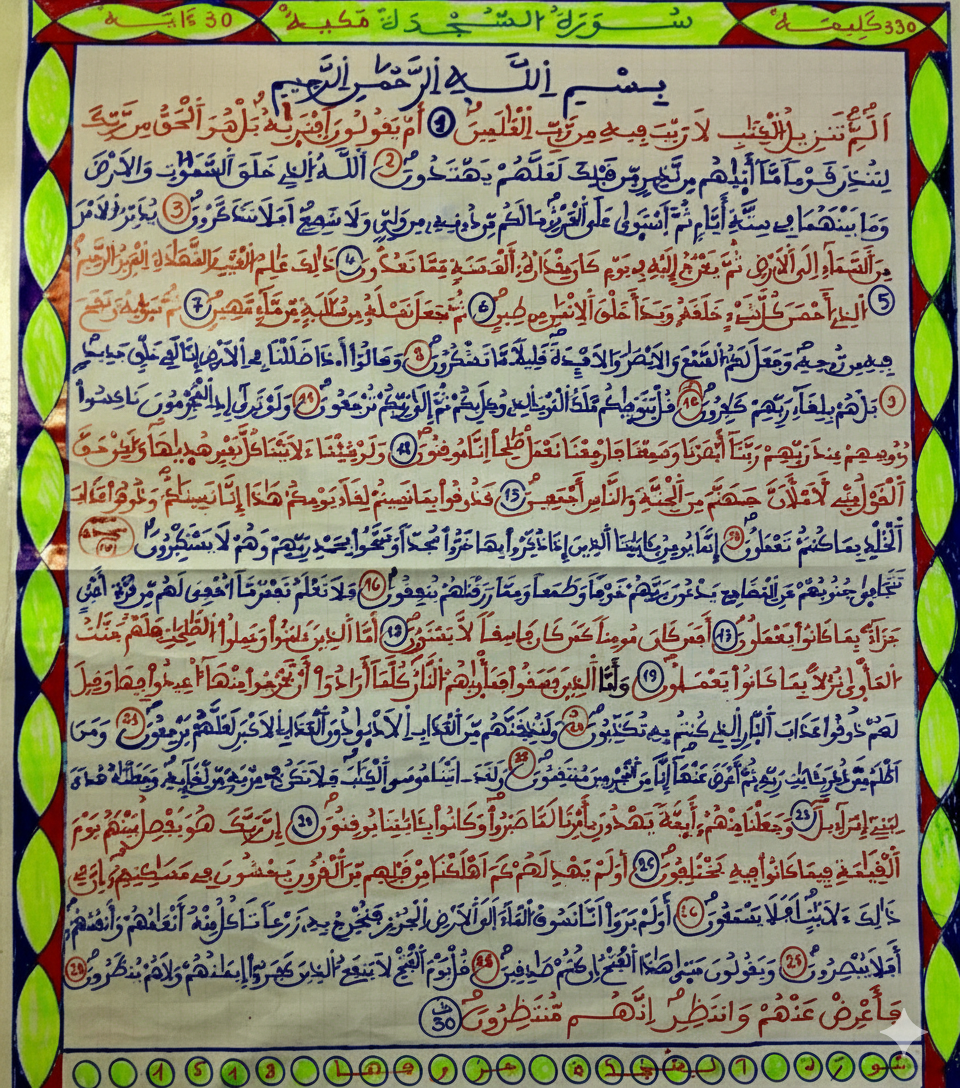 330 كَلِمَة سورة السجدة مكية 30 ءاية
بسم الله الرحمن الرحيم
الم تنزيل الكتب لا ريب فيه من رب العلمين 1 أم يقولون افتريه بل هو الحق من ربك
لتنذر قوما ما أتيهم من نذير من قبلك لعلهم يهتدون 2 الله الذي خلق السموت والارض
وما بينهما في ستة أيام ثم استوى على العرش ما لكم من دونه من ولي ولا شفيع افلا تتذكرون 3 يدبر الامر
من السماء الى الارض ثم يعرج إليه في يوم كان مقداره ألف سنة مما تعدون 4 ذلك علم الغيب والشهدة العزيز الرحيم
5 الذي أحسن كل شيء خلقه وبدأ خلق الانسن من طين 6 ثم جعل نسله من سللة من ماء مهين 7 ثم سويه ونفخ
فيه من روحه وجعل لكم السمع والابصر والافدة قليلا ما تشكرون 8 وقالوا أ.ذا ضللنا في الارض إنا لفي خلق جديد
9 بل هم بلقاء ربهم كفرون 10 قل يتوفيكم ملك الموت الذي وكل بكم ثم إلى ربكم ترجعون 11 ولو ترى إذ المجرمون ناكسوا
رءوسهم عند ربهم ربنا أبصرنا وسمعنا فارجعنا نعمل صلحا إنا موقنون 12 ولو شئنا ءلاتينا كل نفس هديها ولكن حق
القول مني لأملأن جهنم من الجنة والناس أجمعين 13 فذوقوا بما نسيتم لقاء يومكم هذا إنا نسينكم وذوقوا عذاب
الخلد بما كنتم تعملون 14 إنما يومن بئايتنا الذين إذا ذكروا بها خروا سجدا وسبحوا بحمد ربهم وهم لا يستكبرون 15
تتجافى جنوبهم عن المضاجع يدعون ربهم خوفا وطمعا ومما رزقنهم ينفقون 16 فلا تعلم نفس ما أخفي لهم من قرة أعين
جزاء بما كانوا يعملون 17 أفمن كان مومنا كمن كان فاسقا لا يستون 18 أما الذين ءامنوا وعملوا الصلحت فلهم جنت
المأوى نزلا بما كانوا يعملون 19 وأما الذين فسقوا فمأويهم النار كلما أرادوا أن يخرجوا منها أعيدوا فيها وقيل
لهم ذوقوا عذاب النار الذي كنتم به تكذبون 20 ولنذيقنهم من العذاب الادنى دون العذاب الاكبر لعلهم يرجعون 21 ومن
اظلم ممن ذكر بئايت ربه ثم أعرض عنها إنا من المجرمين منتقمون 22 ولقد ـاتينا موسى الكتب فلا تكن في مرية من لقائه وجعلنه هدى
لبني إسراءيل 23 وجعلنا منهم أيمة يهدون بأمرنا لما صبروا وكانوا بئايتنا يوقنون 24 إن ربك هو يفصل بينهم يوم
القيمة فيما كانوا فيه يختلفون 25 أولم يهد لهم كم اهلكنا من قبلهم من القرون يمشون في مسكنهم إن في
ذلك ءلايت افلا يسمعون 26 أولم يروا أنا نسوق الماء إلى الارض الجرز فنخرج به زرعا تاكل منه أنعمهم وأنفسهم
أفلا يبصرون 27 ويقولون متى هذا الفتح إن كنتم صدقين 28 قل يوم الفتح لا ينفع الذين كفروا إيمنهم ولا هم ينظرون 29
فأعرض عنهم وانتظر إنهم منتظرون 30
سورة السجدة حروفها 1518